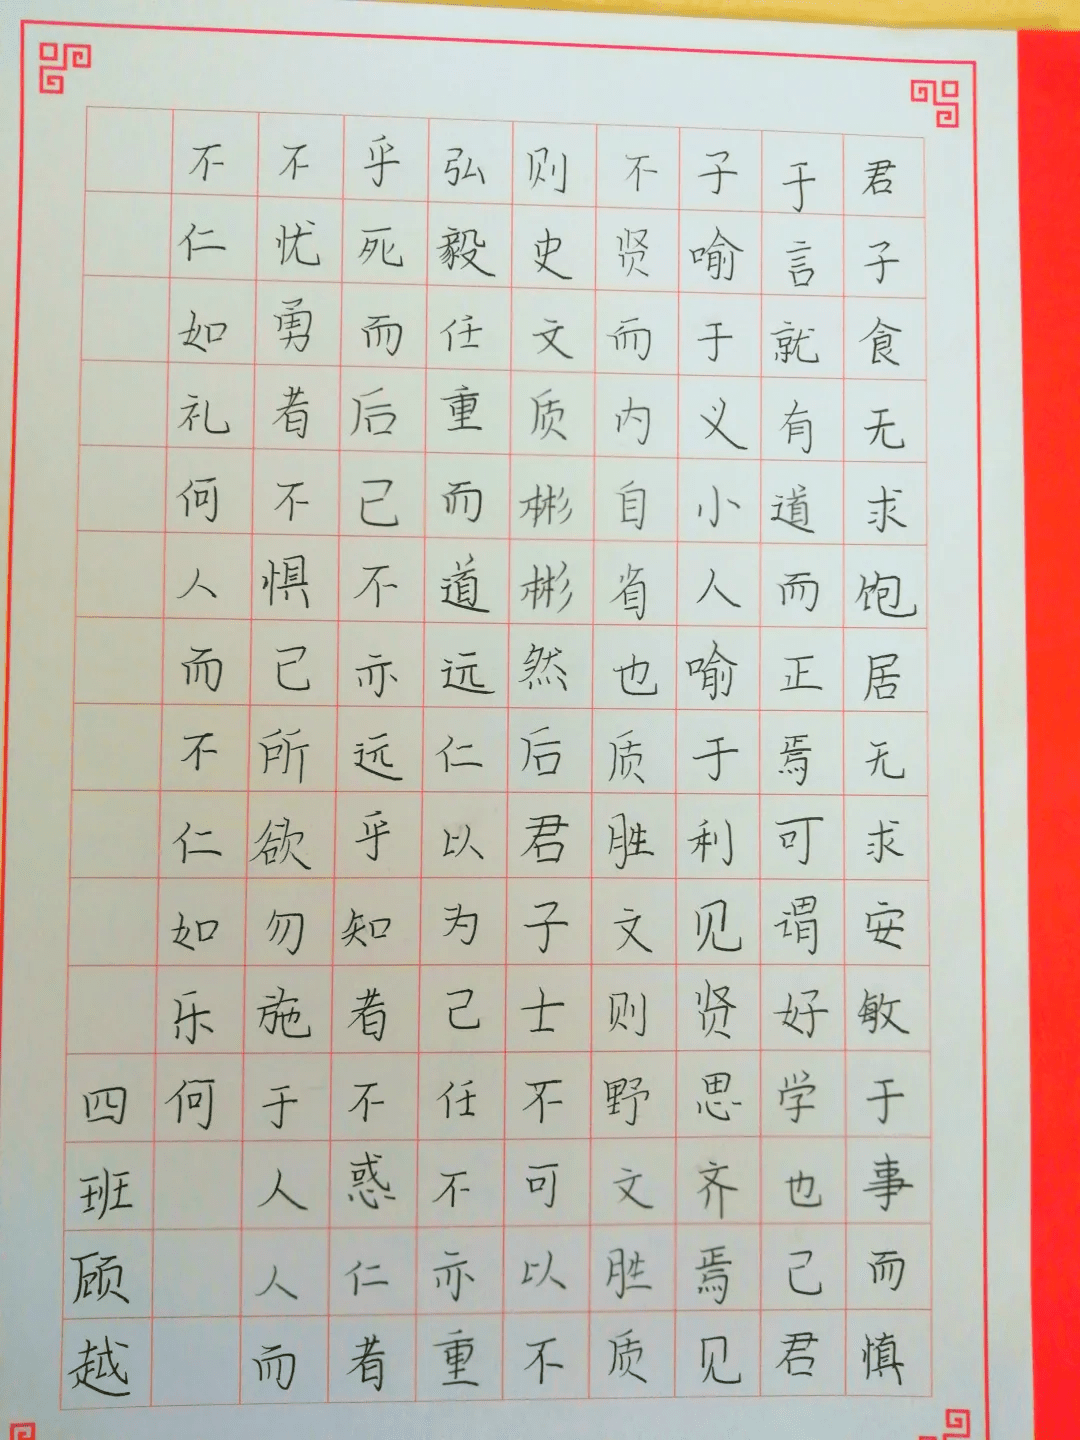 君子食无求饱居无求安敏于事而慎
于言就有道而正焉可谓好学也己君
子喻于义小人喻于利见贤思齐焉见
不贤而内自省也质胜文则野文胜质
则史文质彬彬然后君子士不可以不
弘毅任重而道远仁以为己任不亦重
乎死而后己不亦远乎知者不惑仁者
不忧勇者不惧己所欲勿施于人人而
不仁如礼何人而不仁如乐何
四班顾越